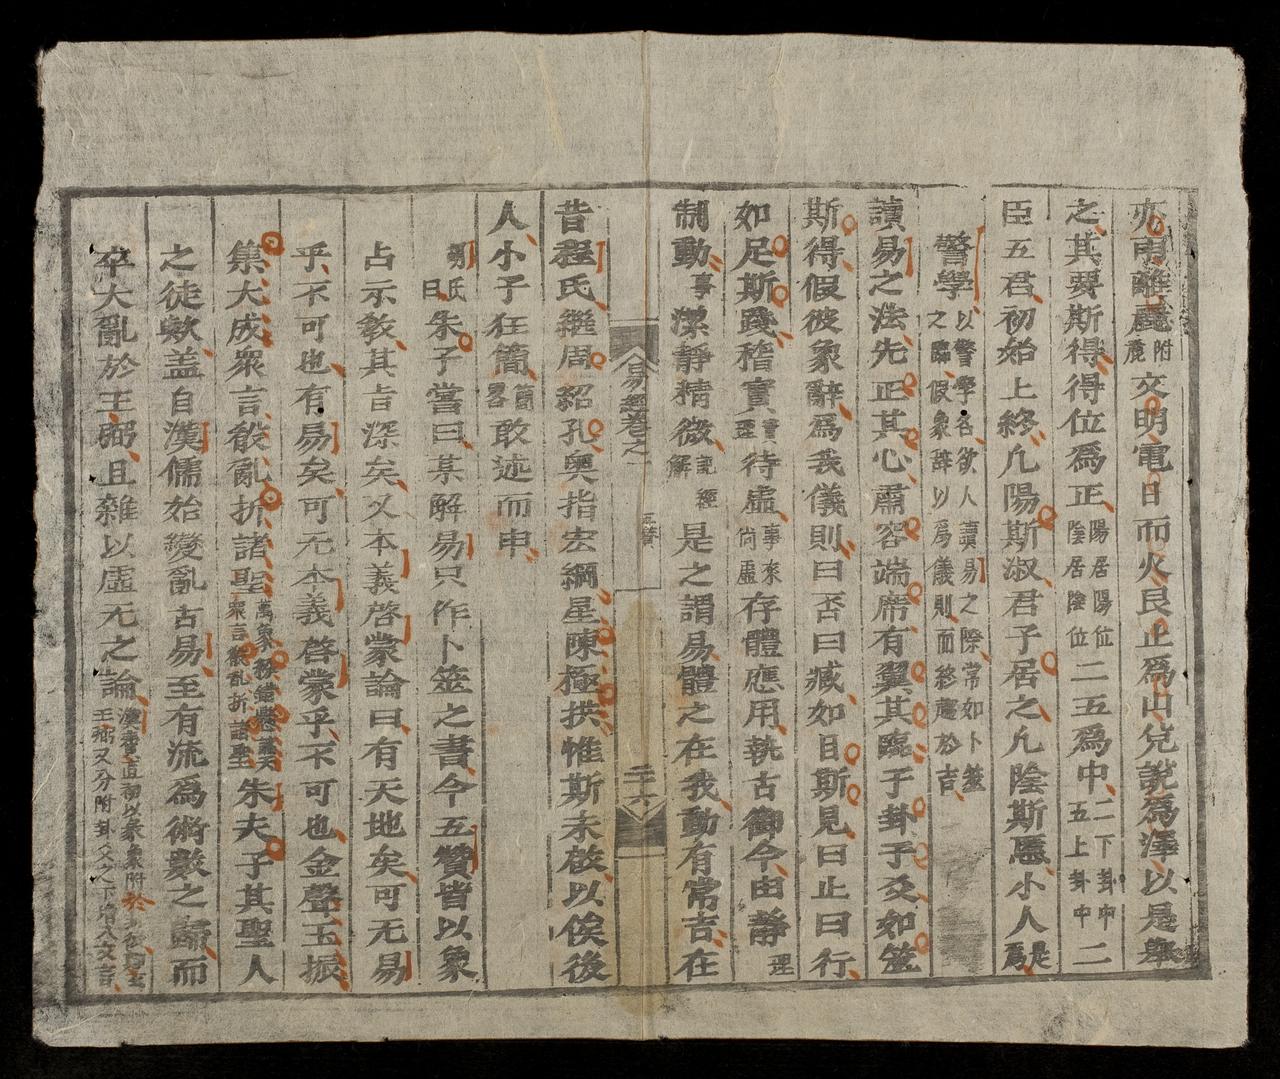 亦中離麗附麗文明電日而火艮止為山兌說為澤以是舉
之其要斯得得位為正陽居陽位陰居陰位二五為中二下卦中五上卦中二
臣五君初始上終凢陽斯淑君子居之凢陰斯慝小人是為
警學以警學者欲人讀易之際常如卜筮之臨假象辞以為儀則而移趨於吉
讀易之法先正其心肅容端席有翼其臨于卦于爻如筮
斯得假彼象辭為我儀則曰否曰臧如目斯見曰止曰行
如足斯踐稽實實理待虛事來尙虛存體應用執古御今由靜理
制動事潔靜精微記經解是之謂易體之在我動有常吉在
易經卷之一 五贊 二十六
昔程氏繼周紹孔奧指宏綱星陳極拱惟斯未啟以俟後
人小子狂簡簡畧敢述而申
胡氏曰朱子嘗曰某解易只作卜筮之書今五贊皆以象
占示教其旨深矣又本義啓蒙論曰有天地矣可无易
乎不可也有易矣可无本義啓蒙乎不可也金聲玉振
集大成眾言殽亂折諸聖眾言殽乱折諸聖朱夫子其聖人
之徒歟盖自漢儒始變亂古易至有流為術數之歸而
卒大亂於王弼且雜以虛无之論王弼又分附卦爻之下增入文言